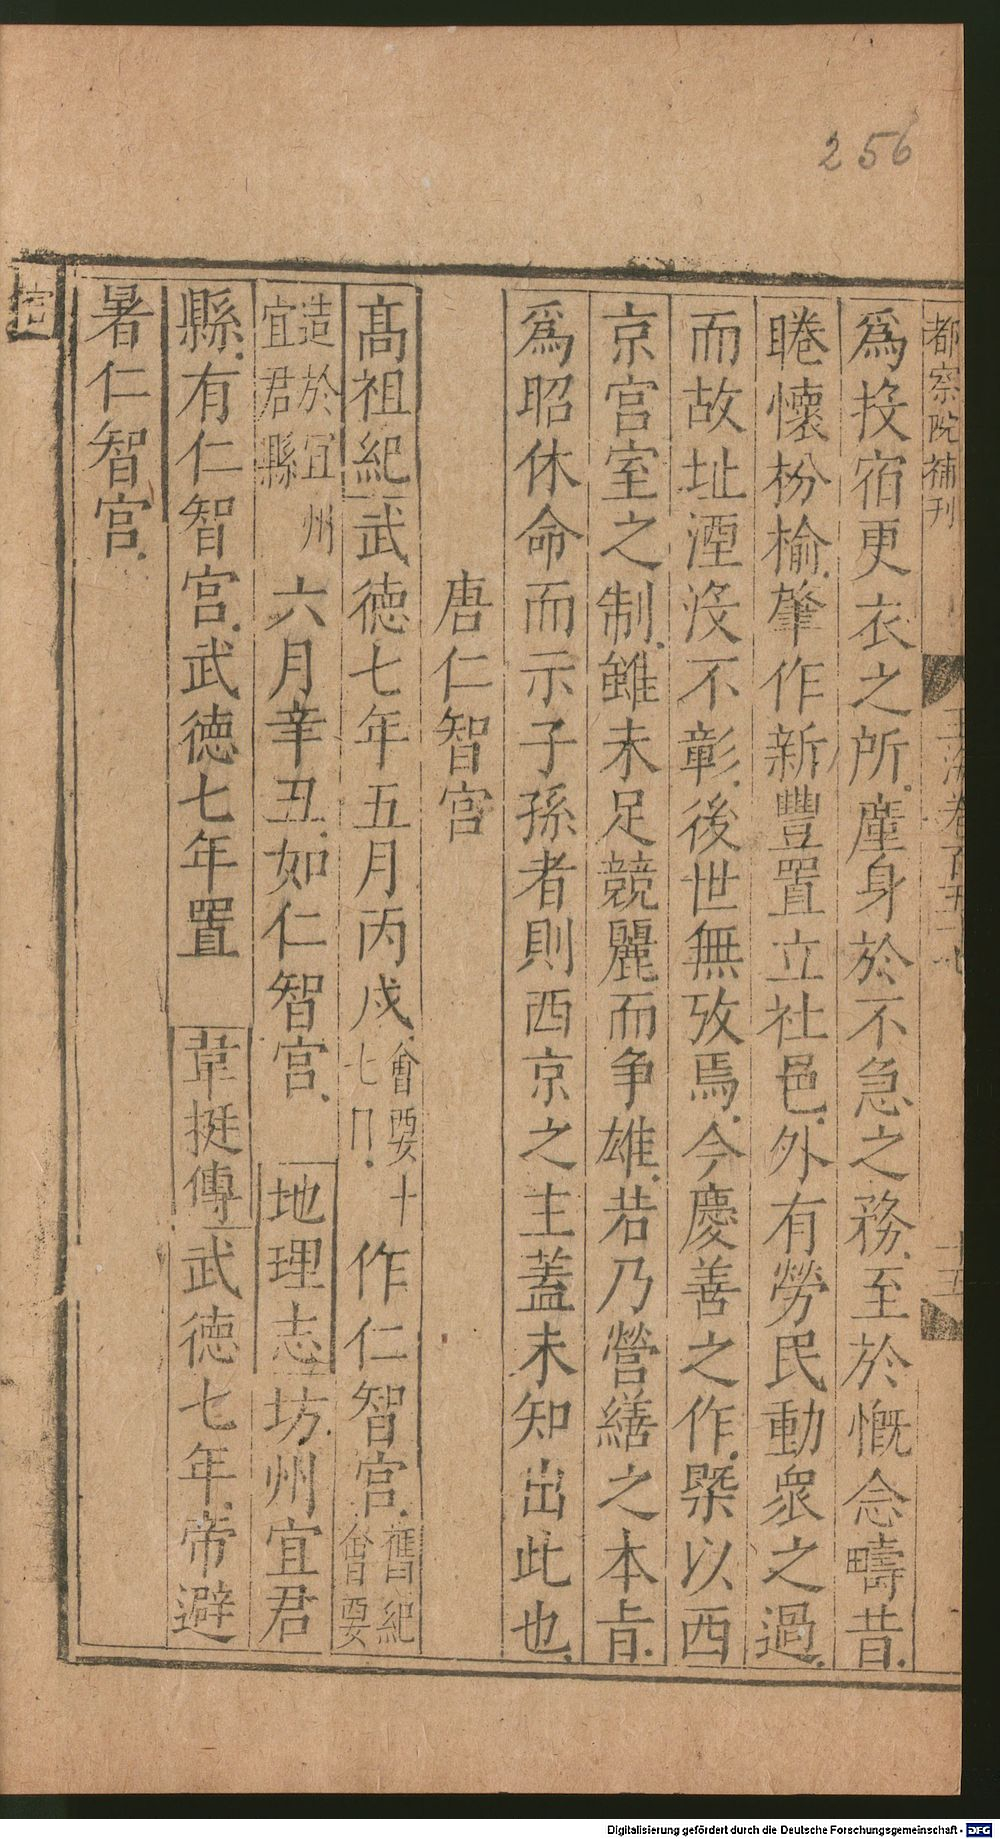 256
都察院補刊
玉海卷百五十七
十五
爲投宿更衣之所產身於不急之務至於慨念疇昔
睠懷枌榆肇作新豐置立社邑外有勞民動衆之過
而故址湮沒不彰後世無攷焉今慶善之作槩以西
京宮室之制雖未足競麗而爭雄若乃營繕之本旨
爲昭休命而示子孫者則西京之主蓋未知出此也
唐仁智宮
髙祖紀武德七年五月丙戌會要十七日作仁智宮舊紀會要
造於宜州宜君縣六月辛丑如仁智宮地理志坊州宜君
縣有仁智宮武德七年置韋挺傳武德七年帝避
暑仁智宮
宮
Digitalisierung gefördert durch die Deutsche Forschungsgemeinschaft - DFG